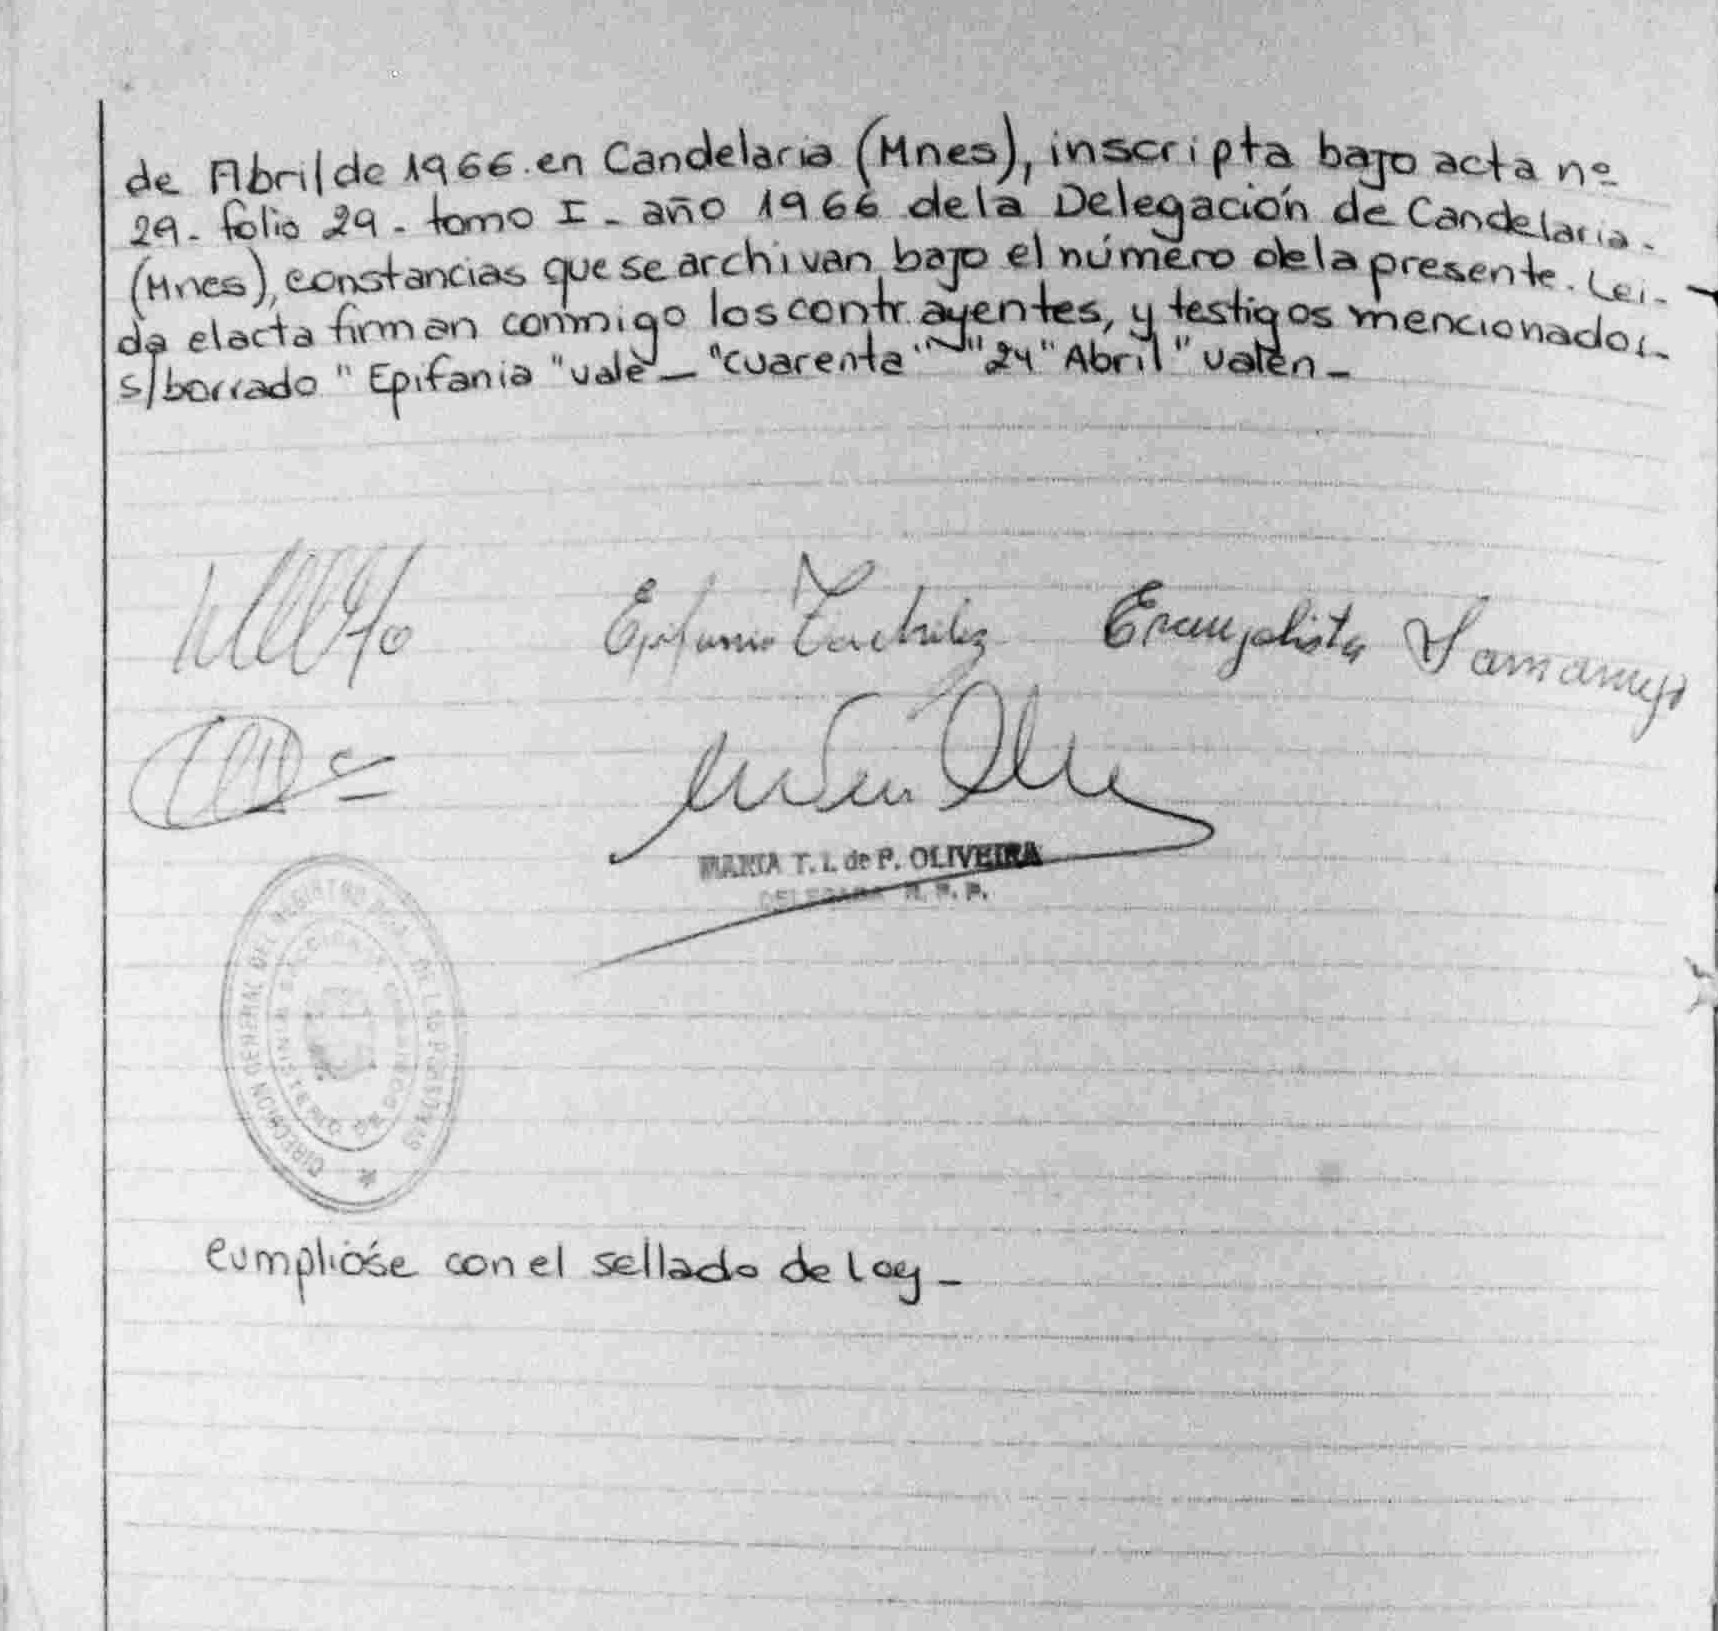 de Abril de 1966. en Candelaria (Mnes), inscripta bajo acta nº
29. folio 29. tomo I - año 1966 de la Delegación de Candelaria.
(Mnes), constancias que se archivan bajo el número de la presente. Lei-
da el acta firman conmigo los contrayentes, y testigos mencionados.
s/borrado "Epifania" vale - "cuarenta" "24" "Abril" valen -
Epifania Evangelista Samaniego
MARIA T. I. de P. OLIVEIRA
DELEGADA R. P. P.
DIRECCION GENERAL DEL REGISTRO PCIAL. DE LAS PERSONAS
MINISTERIO DE GOBIERNO
Cumplióse con el sellado de ley -